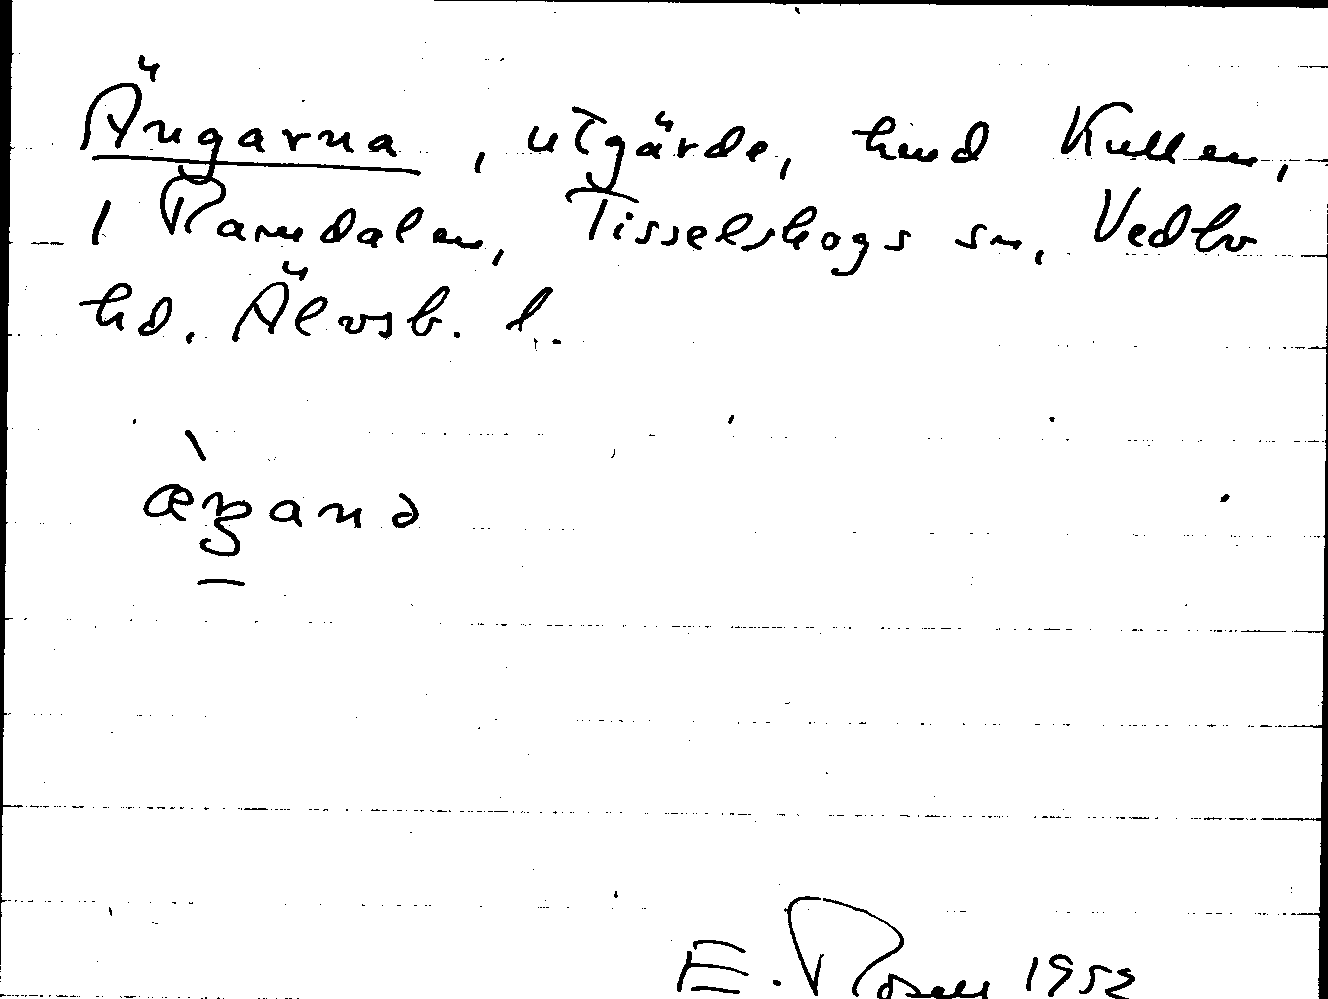 Ängarna, utgärde, hmd Kullen,
1 Ramdalen, Tisselskogs sn, Vedbo
hd. Älvsb. l.
E. Rosell 1952